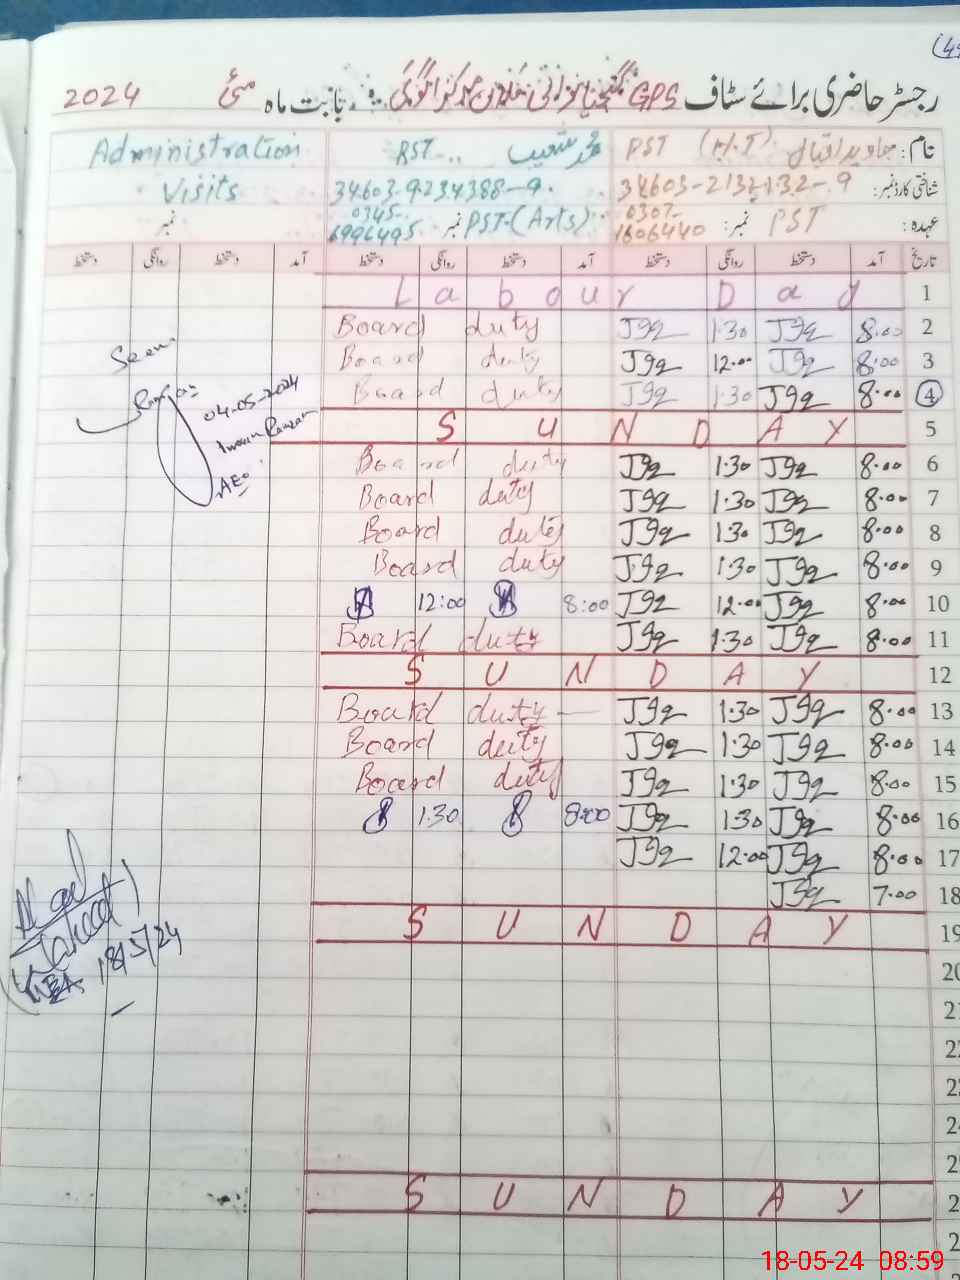 (4
رجسٹر حاضری برائے سٹاف GPS بابت ماہ مئی 2024
نام: جاوید اقبال PST (H.T) محمد شعیب PST... Administration
شناختی کارڈ نمبر: 34603-2132132-9 34603-9234388-9 Visits
عہدہ: PST نمبر: 0307-1606440 PST-(Arts) نمبر 0345-6996495 نمبر
تاریخ آمد دستخط روانگی دستخط آمد دستخط روانگی دستخط آمد دستخط روانگی دستخط
Labour Day 1
Board duty J9q 1.30 J9q 8.00 2
Board duty J9q 12.00 J9q 8.00 3
Board duty J9q 1.30 J9q 8.00 4
SUNDAY 5
Board duty J9q 1.30 J9q 8.00 6
Board duty J9q 1.30 J9q 8.00 7
Board duty J9q 1.30 J9q 8.00 8
Board duty J9q 1.30 J9q 8.00 9
12:00 8:00 J9q 12.00 J9q 8.00 10
Board duty J9q 1.30 J9q 8.00 11
SUNDAY 12
Board duty J9q 1.30 J9q 8.00 13
Board duty J9q 1.30 J9q 8.00 14
Board duty J9q 1.30 J9q 8.00 15
1.30 8:00 J9q 1.30 J9q 8.00 16
J9q 12.00 J9q 8.00 17
J9q 7.00 18
SUNDAY 19
20
21
22
23
24
25
SUNDAY 2
2
Seen
04-05-2024
AEO
18/5/24
18-05-24 08:59